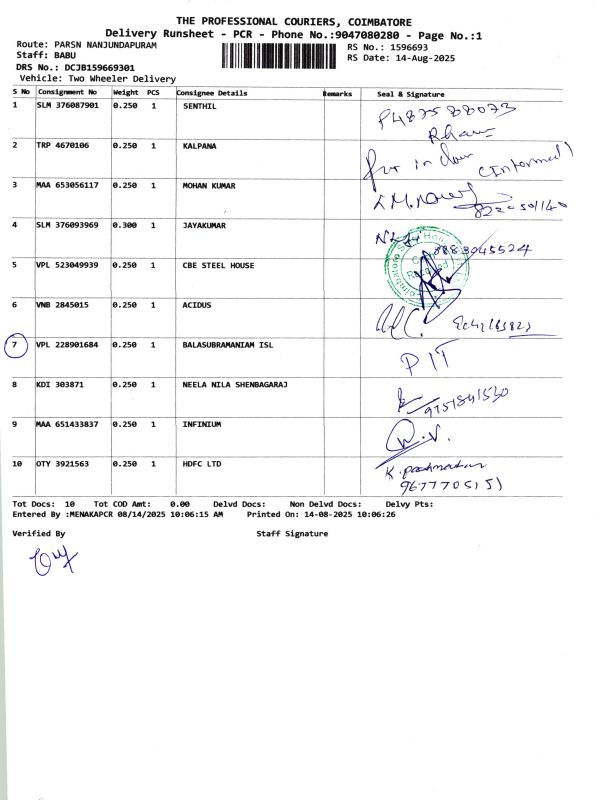 THE PROFESSIONAL COURIERS, COIMBATORE
Delivery Runsheet - PCR - Phone No.:9047080280 - Page No.:1
Route: PARSN NANJUNDAPURAM
Staff: BABU
RS No.: 1596693
RS Date: 14-Aug-2025
DRS No.: DCJB159669301
Vehicle: Two Wheeler Delivery
S No Consignment No Weight PCS Consignee Details Remarks Seal & Signature
1 SLM 376087901 0.250 1 SENTHIL
2 TRP 4670106 0.250 1 KALPANA
(Informed)
3 MAA 653056117 0.250 1 MOHAN KUMAR
4 SLM 376093969 0.300 1 JAYAKUMAR
9883045524
5 VPL 523049939 0.250 1 CBE STEEL HOUSE
6 VNB 2845015 0.250 1 ACIDUS
7 VPL 228901684 0.250 1 BALASUBRAMANIAM ISL
PIT
8 KDI 303871 0.250 1 NEELA NILA SHENBAGARAJ
9751841530
9 MAA 651433837 0.250 1 INFINIUM
10 OTY 3921563 0.250 1 HDFC LTD
9677705151
Tot Docs: 10 Tot COD Amt: 0.00 Delvd Docs: Non Delvd Docs: Delvy Pts:
Entered By :MENAKAPCR 08/14/2025 10:06:15 AM Printed On: 14-08-2025 10:06:26
Verified By Staff Signature